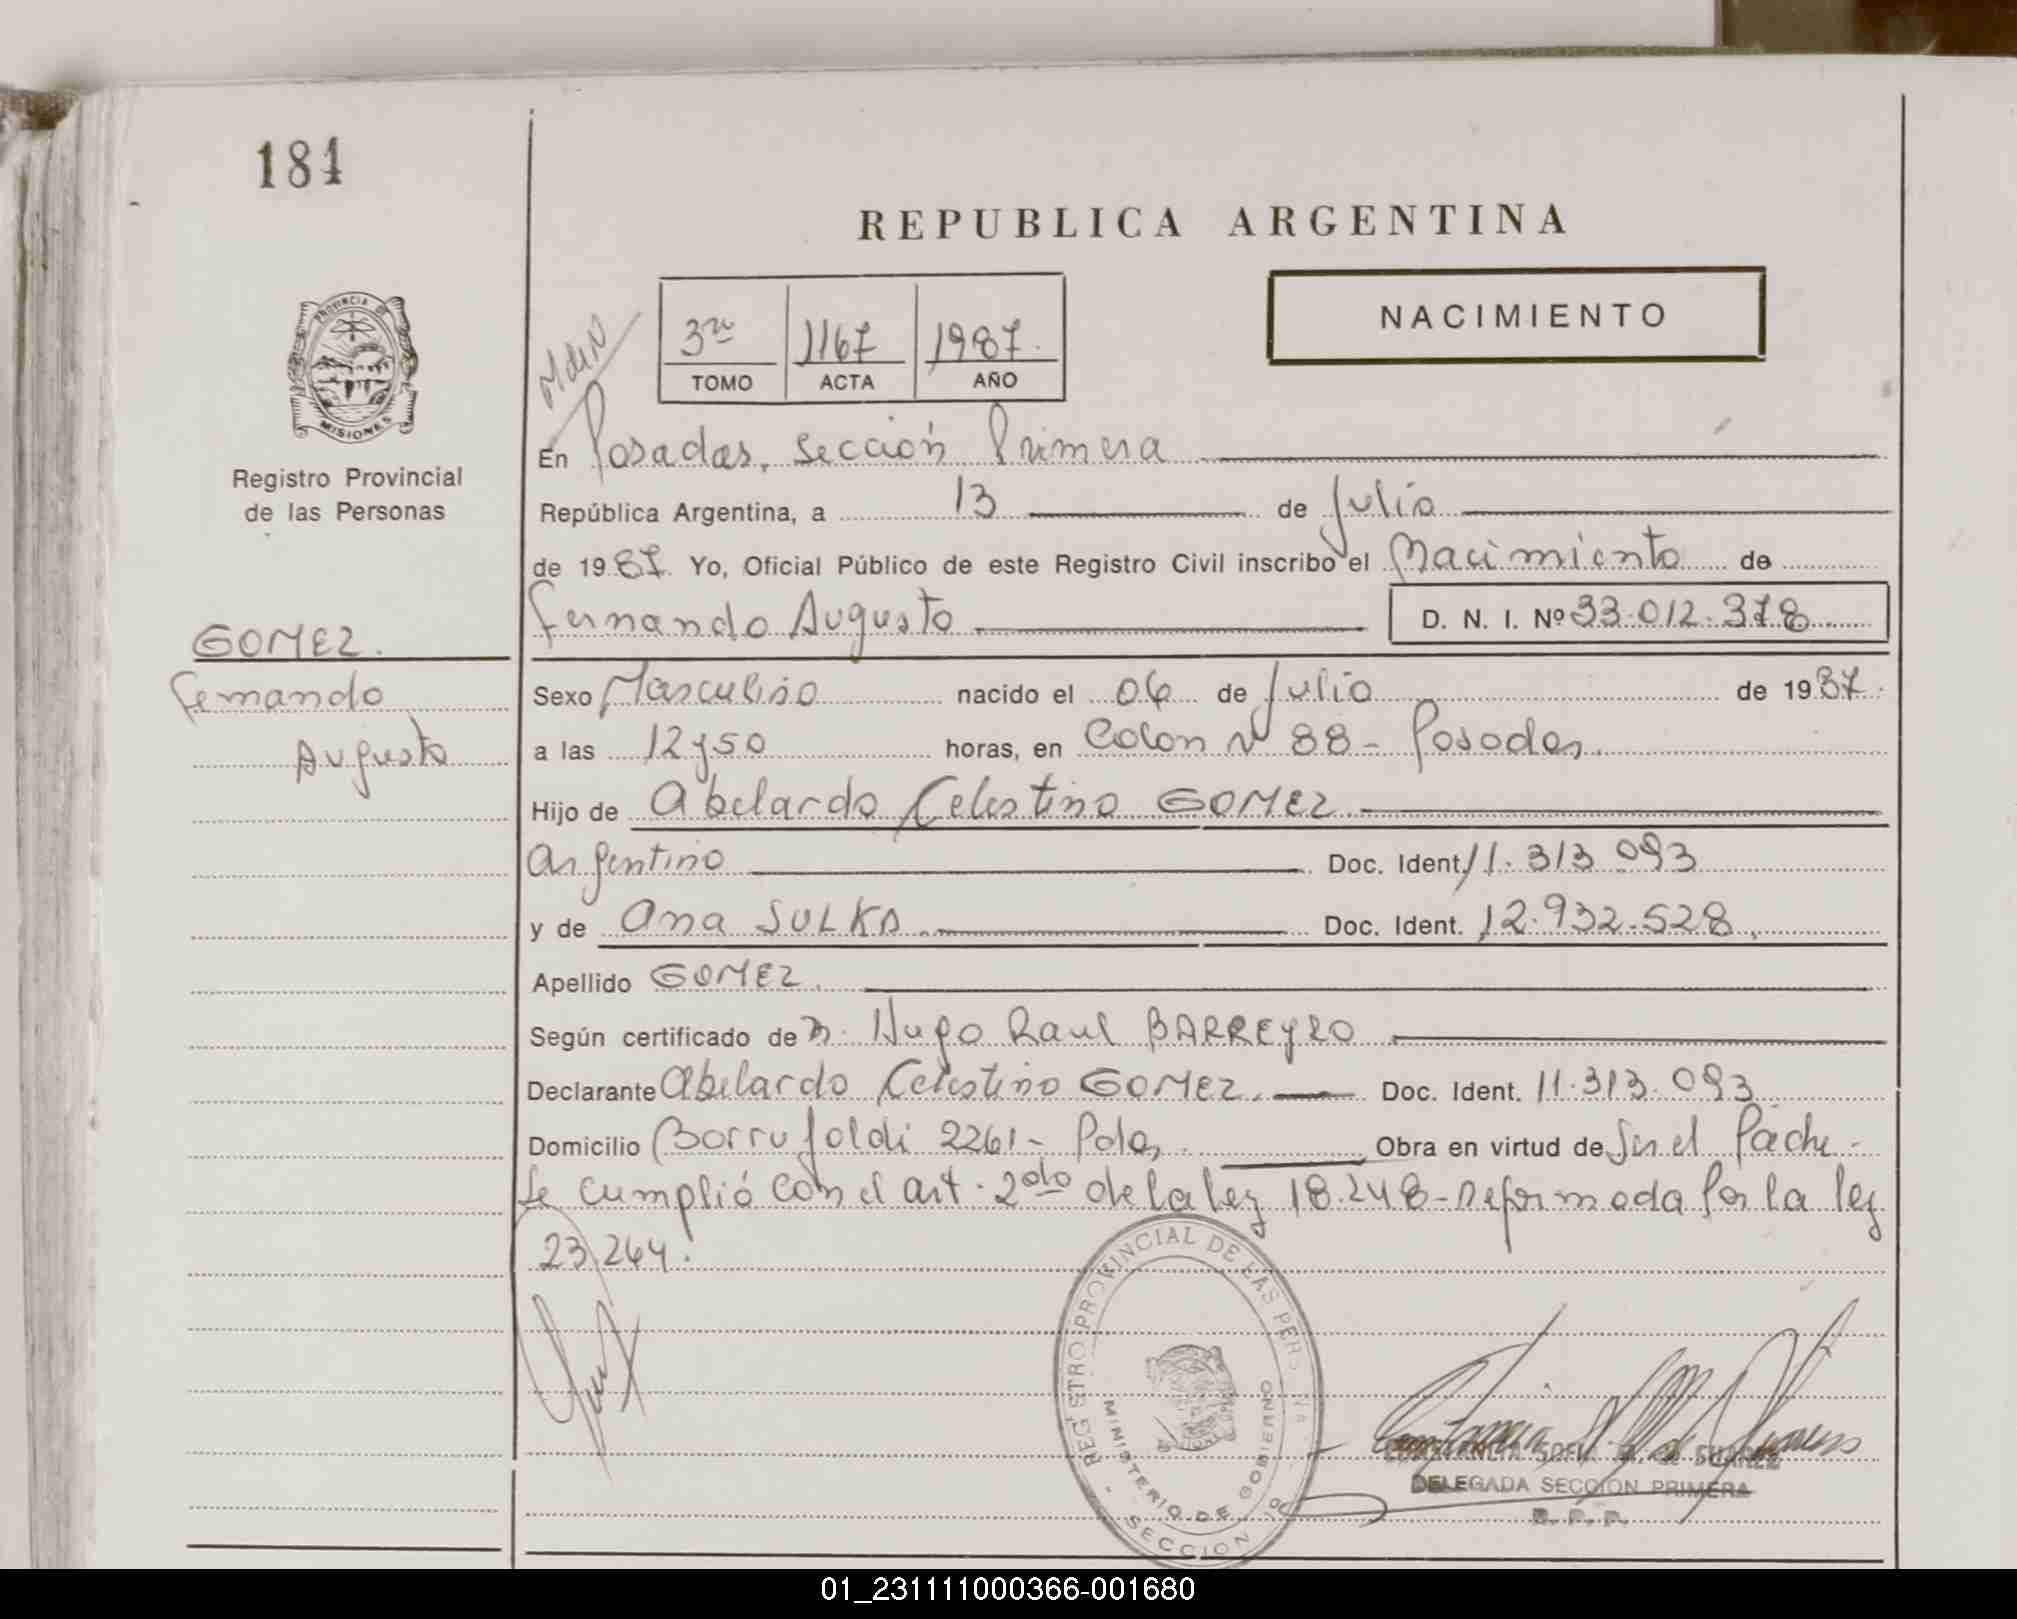 184
REPUBLICA ARGENTINA
PROVINCIA DE
MISIONES
Registro Provincial
de las Personas
3ro 1167 1987.
TOMO ACTA AÑO
NACIMIENTO
En Posadas, Sección Primera
República Argentina, a 13 de Julio
de 1987. Yo, Oficial Público de este Registro Civil inscribo el Nacimiento de
Fernando Augusto D. N. I. Nº 33.012.378
GOMEZ.
Fernando
Augusto
Sexo Masculino nacido el 06 de Julio de 1987.
a las 12 y 50 horas, en Colon Nº 88 - Posadas.
Hijo de Abelardo Celestino GOMEZ
Argentino Doc. Ident. 11.313.093
y de Ana SULKA. Doc. Ident. 12.932.528.
Apellido GOMEZ.
Según certificado de Hugo Raul BARREYRO
Declarante Abelardo Celestino GOMEZ. Doc. Ident. 11.313.093
Domicilio 2261 - Pdas. Obra en virtud de Ser el Padre -
Se cumplió con el art. 2do de la ley 18.248 - reformada por la ley
23.264.
REGISTRO PROVINCIAL DE LAS PERSONAS
MINISTERIO DE GOBIERNO
SECCION
SOFIA SUAREZ
DELEGADA SECCION PRIMERA
R. P. P.
01_231111000366-001680